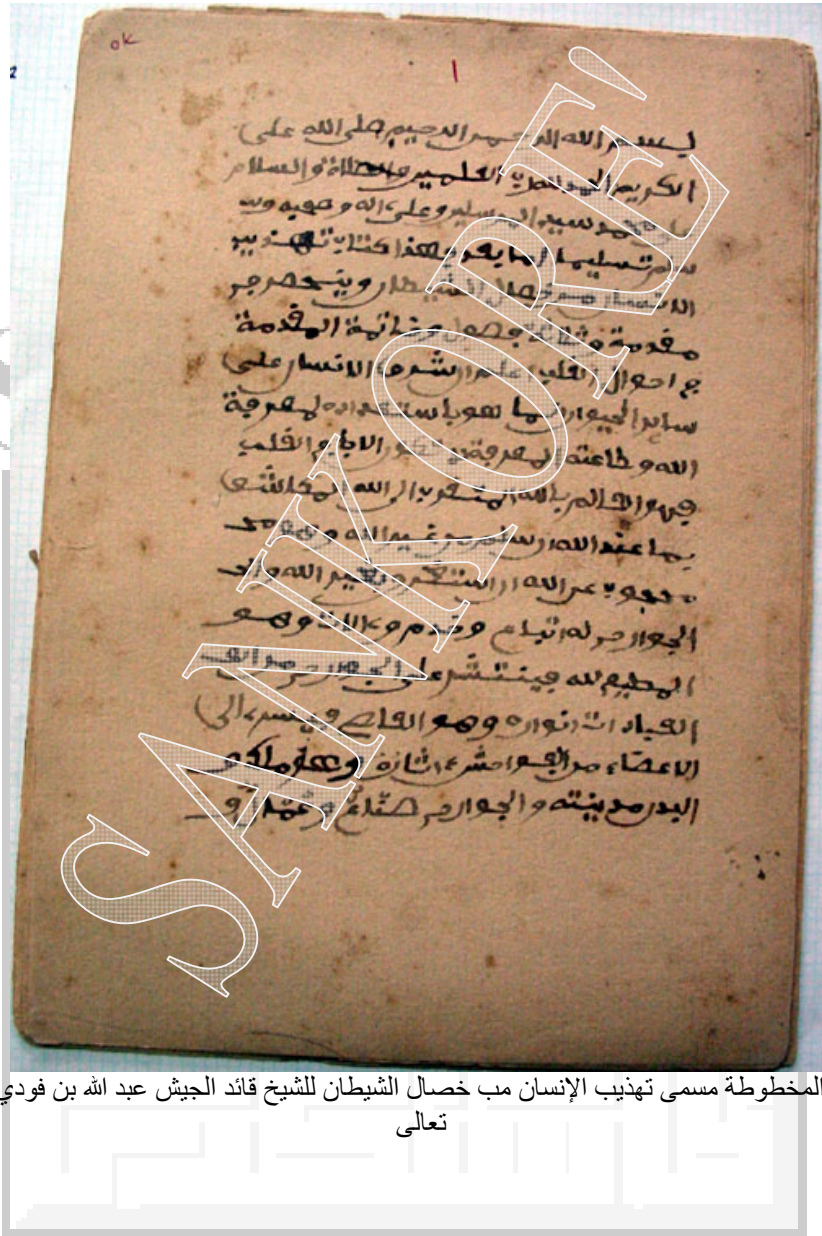 ok
بسم الله الرحمن الرحيم صلى الله على
الكريم الحمد لله رب العلمين والصلاة والسلام
محمد سيد المرسلين وعلى اله وصحبه وسـ
سلم تسليما اما بعد فهذا كتاب تهذيب
الانسان من خصال الشيطان وينحصر في
مقدمة وثلاثة فصول وخاتمة المقدمة
في احوال القلب اعلم ان شرف الانسان على
ساير الحيوان انما هو باستعداده لمعرفة
الله وطاعته المعرفة الا القلب
فهو العالم بالله المتقرب الى الله المكاشف
بما عند الله ان سلم من غير الله وهو محـ
محجوب عن الله ان استغرق بغير الله وانمـ
الجوارح له اتباع وخدم وءالات وهو
المطيع لله فينتشر على الجوارح من العـ
العبادات انواره وهو العاصي
الاعضاء من الفواحش ءاثاره
البدن مدينته والجوارح صناع وعمال و
SANKORE'
المخطوطة مسمى تهذيب الإنسان مب خصال الشيطان للشيخ قائد الجيش عبد الله بن فودي
تعالى